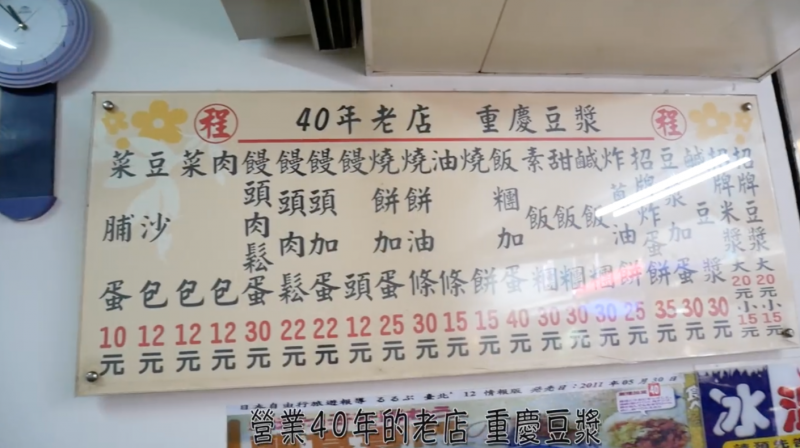 程 40年老店 重慶豆漿 程
招牌豆漿 大20元 小15元
招牌米漿 大20元 小15元
鹹豆漿 30元
豆漿加蛋 30元
招牌炸蛋餅 35元
炸蔥油餅 25元
鹹飯糰 30元
甜飯糰 30元
素飯糰 30元
飯糰加蛋 40元
燒餅 15元
油條 15元
燒餅油條 30元
燒餅加蛋 25元
饅頭 12元
饅頭加蛋 22元
饅頭肉鬆 22元
饅頭肉鬆蛋 30元
肉包 12元
菜包 12元
豆沙包 12元
菜脯蛋 10元
日本自由行旅遊報導 るるぶ 臺北'12 情報版 發売日:2011年05月30日
冰
營業40年的老店 重慶豆漿